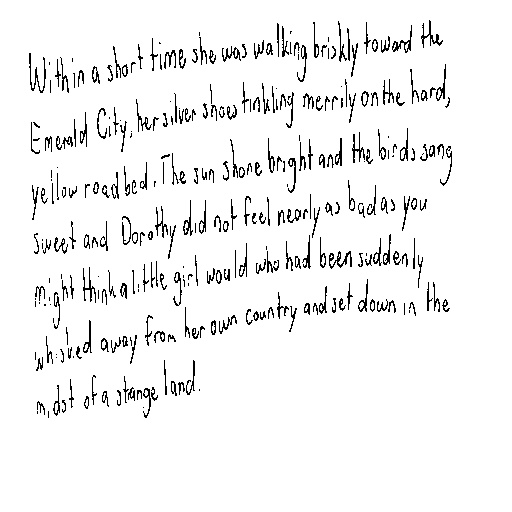 Within a short time she was walking briskly toward the
Emerald City, her silver shoes tinkling merrily on the hard,
yellow road bed. The sun shone bright and the birds sang
sweet and Dorothy did not feel nearly as bad as you
might think a little girl would who had been suddenly
whisked away from her own country and set down in the
midst of a strange land.